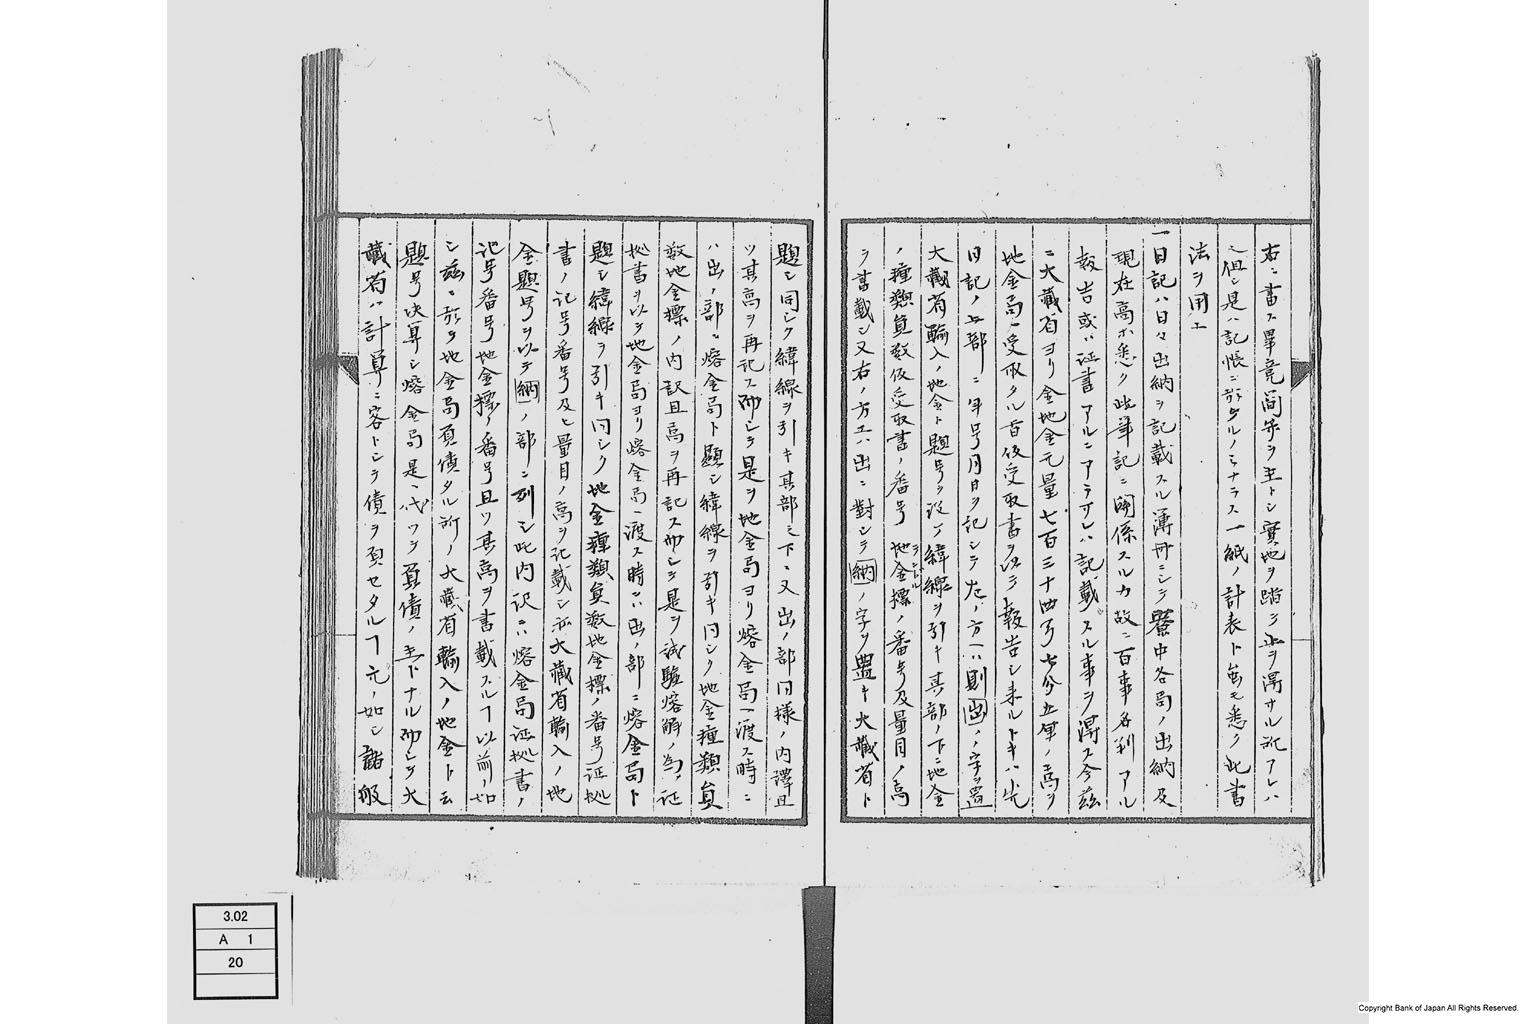 右ニ書ス畢竟簡弁ヲ主トシ實地ヲ踏ミ止ヲ得サル所アレハ
也但シ是ハ記帳ニ於タルノミナラス一紙ノ計表ト虽モ悉ク此書
法ヲ用ユ
一日記ハ日々出納ヲ記載スル薄冊ニシテ寮中各局ノ出納及
現在高ホ悉ク此筆記ニ関係スルカ故ニ百事各利アル
報告或ハ证書アルニアラサレハ記載スル事ヲ得ス今茲
ニ大藏省ヨリ金地金元量七百三十四弓七分五厘ノ高ヲ
地金局ヘ受取タル旨仮受取書ヲ以テ報告シ来ルトキハ先
日記ノ上部ニ年号月日ヲ記シテ左ノ方ヘハ則出ノ字ヲ置
大藏省輸入ノ地金ト題号ヲ設ケ緯線ヲ引キ其部ノ下ニ地金
ノ種類員数仮受取書ノ番号 地金標ノ番号及量目ノ高
ヲ書載シ又右ノ方エハ出ニ對シテ納ノ字ヲ置キ大藏省ト
題シ同シク緯線ヲ引キ其部ミ下ニ又出ノ部同様ノ内譯且
ツ其高ヲ再記ス而シテ是ヲ地金局ヨリ熔金局ヘ渡ス時ニ
ハ出ノ部ニ熔金局ト題シ緯線ヲ引キ同シク地金種類員
数地金標ノ内訳且高ヲ再記ス而シテ是ヲ試驗熔解ノ為メ证
拠書ヲ以テ地金局ヨリ熔金局ヘ渡ス時ニハ出ノ部ニ熔金局ト
題シ緯線ヲ引キ同シク地金種類員数地金標ノ番号证拠
書ノ记号番号及ヒ量目ノ高ヲ记載シ亦大藏省輸入ノ地
金題号ヲ以テ納ノ部ニ列シ此内訳ニハ熔金局证拠書ノ
记号番号地金標ノ番号且ツ其高ヲ書載スルヿ以前ノ如
シ茲ニ於テ地金局負債タル所ノ大藏省輸入ノ地金ト云
題号决算シ熔金局是ニ代ツテ負債ノ主トナル而シテ大
藏省ハ計算ニ客トシテ債ヲ負セタルヿ元ノ如シ諸般
3.02
A 1
20
Copyright Bank of Japan All Rights Reserved.